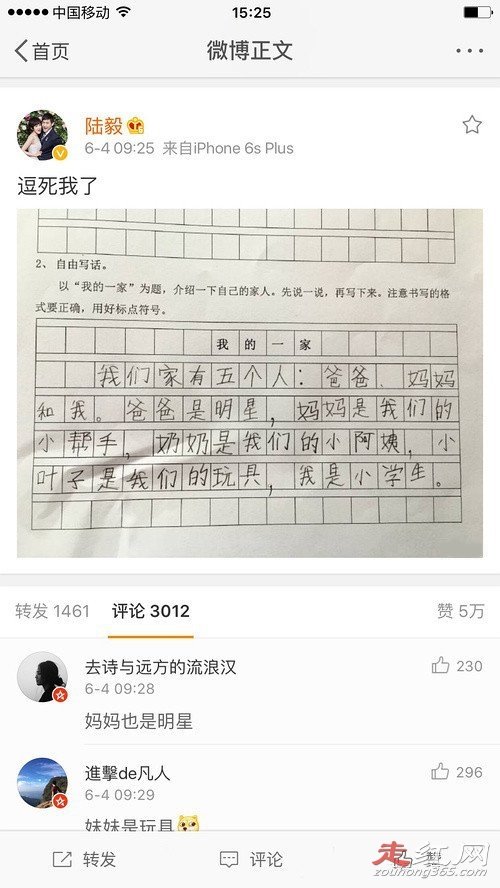 中国移动
15:25
首页
微博正文
陆毅
6-4 09:25 来自iPhone 6s Plus
逗死我了
2、自由写话。
以“我的一家”为题，介绍一下自己的家人。先说一说，再写下来。注意书写的格
式要正确，用好标点符号。
我的一家
我们家有五个人：爸爸、妈妈
和我。爸爸是明星，妈妈是我们的
小帮手，奶奶是我们的小阿姨，小
叶子是我们的玩具，我是小学生。
转发 1461 评论 3012 赞 5万
去诗与远方的流浪汉 230
6-4 09:28
妈妈也是明星
進擊de凡人 296
6-4 09:29
妹妹是玩具
转发 评论
走红网
zouhong365.com